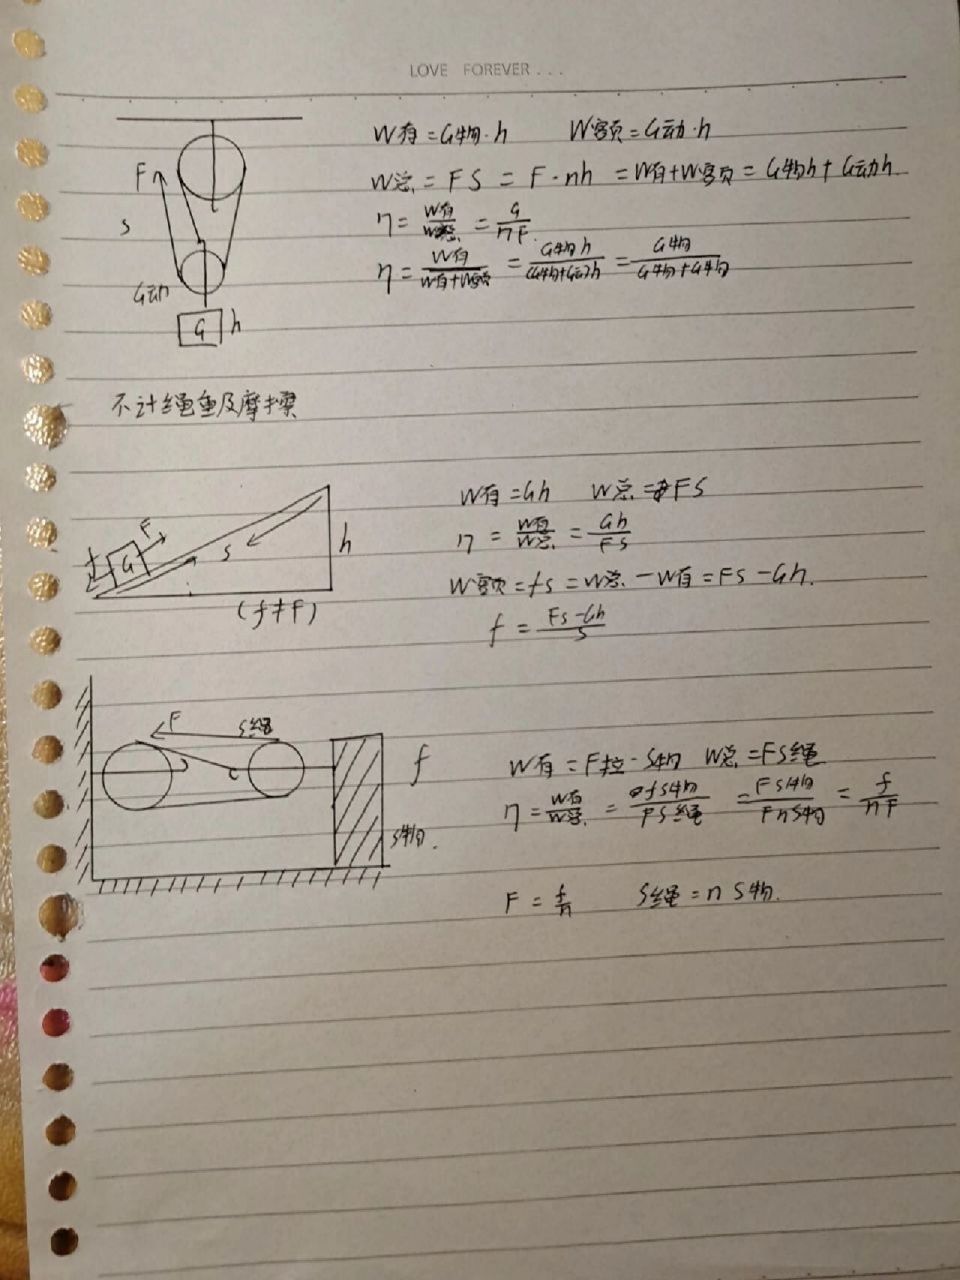 LOVE FOREVER...
W有=G物·h W额=G动·h
F
W总=FS=F·nh=W有+W额=G物h+G动h
S
η=W有/W总=G/nF
η=W有/(W有+W额)=G物h/(G物+G动)h=G物/(G物+G物)
G动
G h
不计绳重及摩擦
W有=Gh W总=FS
F
f G S h
η=W有/W总=Gh/FS
W额=fs=W总-W有=FS-Gh.
(f≠F)
f=(Fs-Gh)/S
F S绳
f
W有=F拉·S物 W总=FS绳
η=W有/W总=fS物/FS绳=FS物/FnS物=f/nF
S物.
F=f/n S绳=nS物.